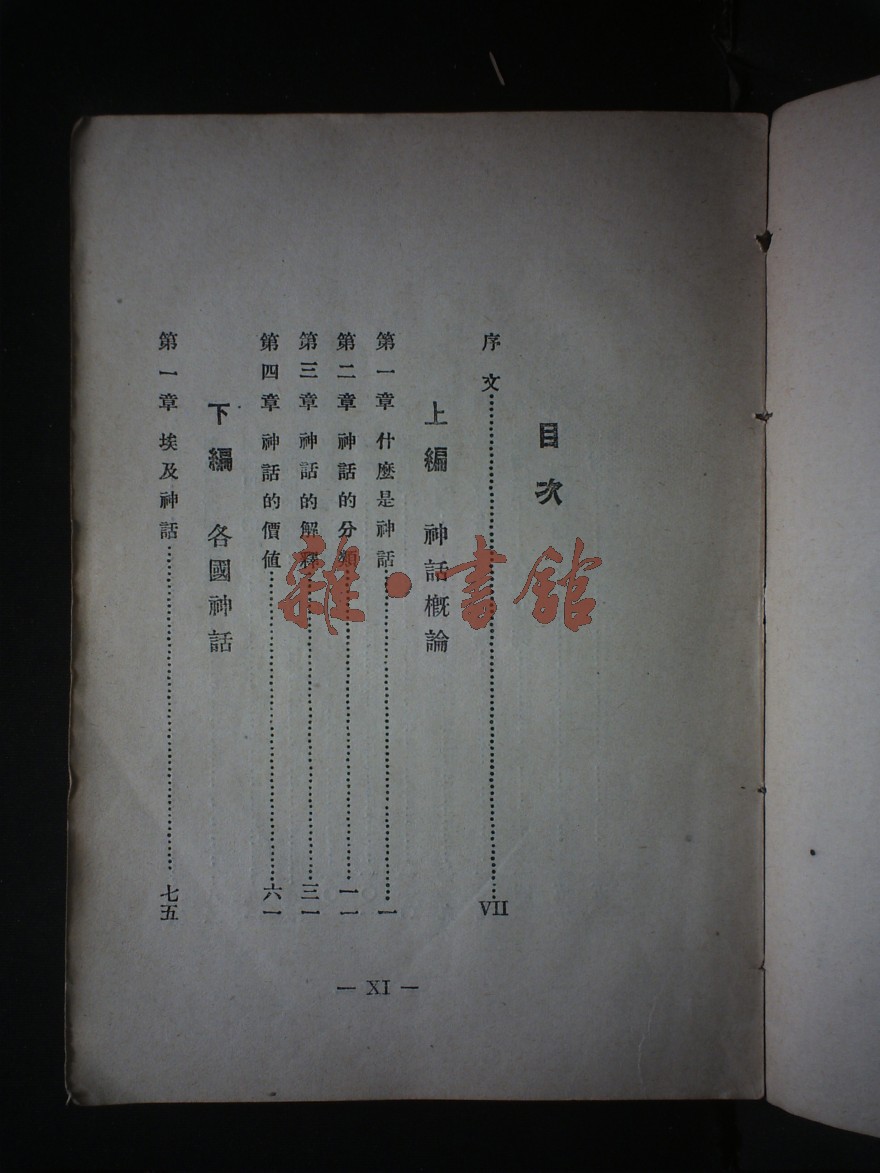 目次
序文……VII
上編 神話概論
第一章 什麼是神話……一
第二章 神話的分類……一一
第三章 神話的解釋……三一
第四章 神話的價値……六一
下編 各國神話
第一章 埃及神話……七五
— XI —
雜·書館